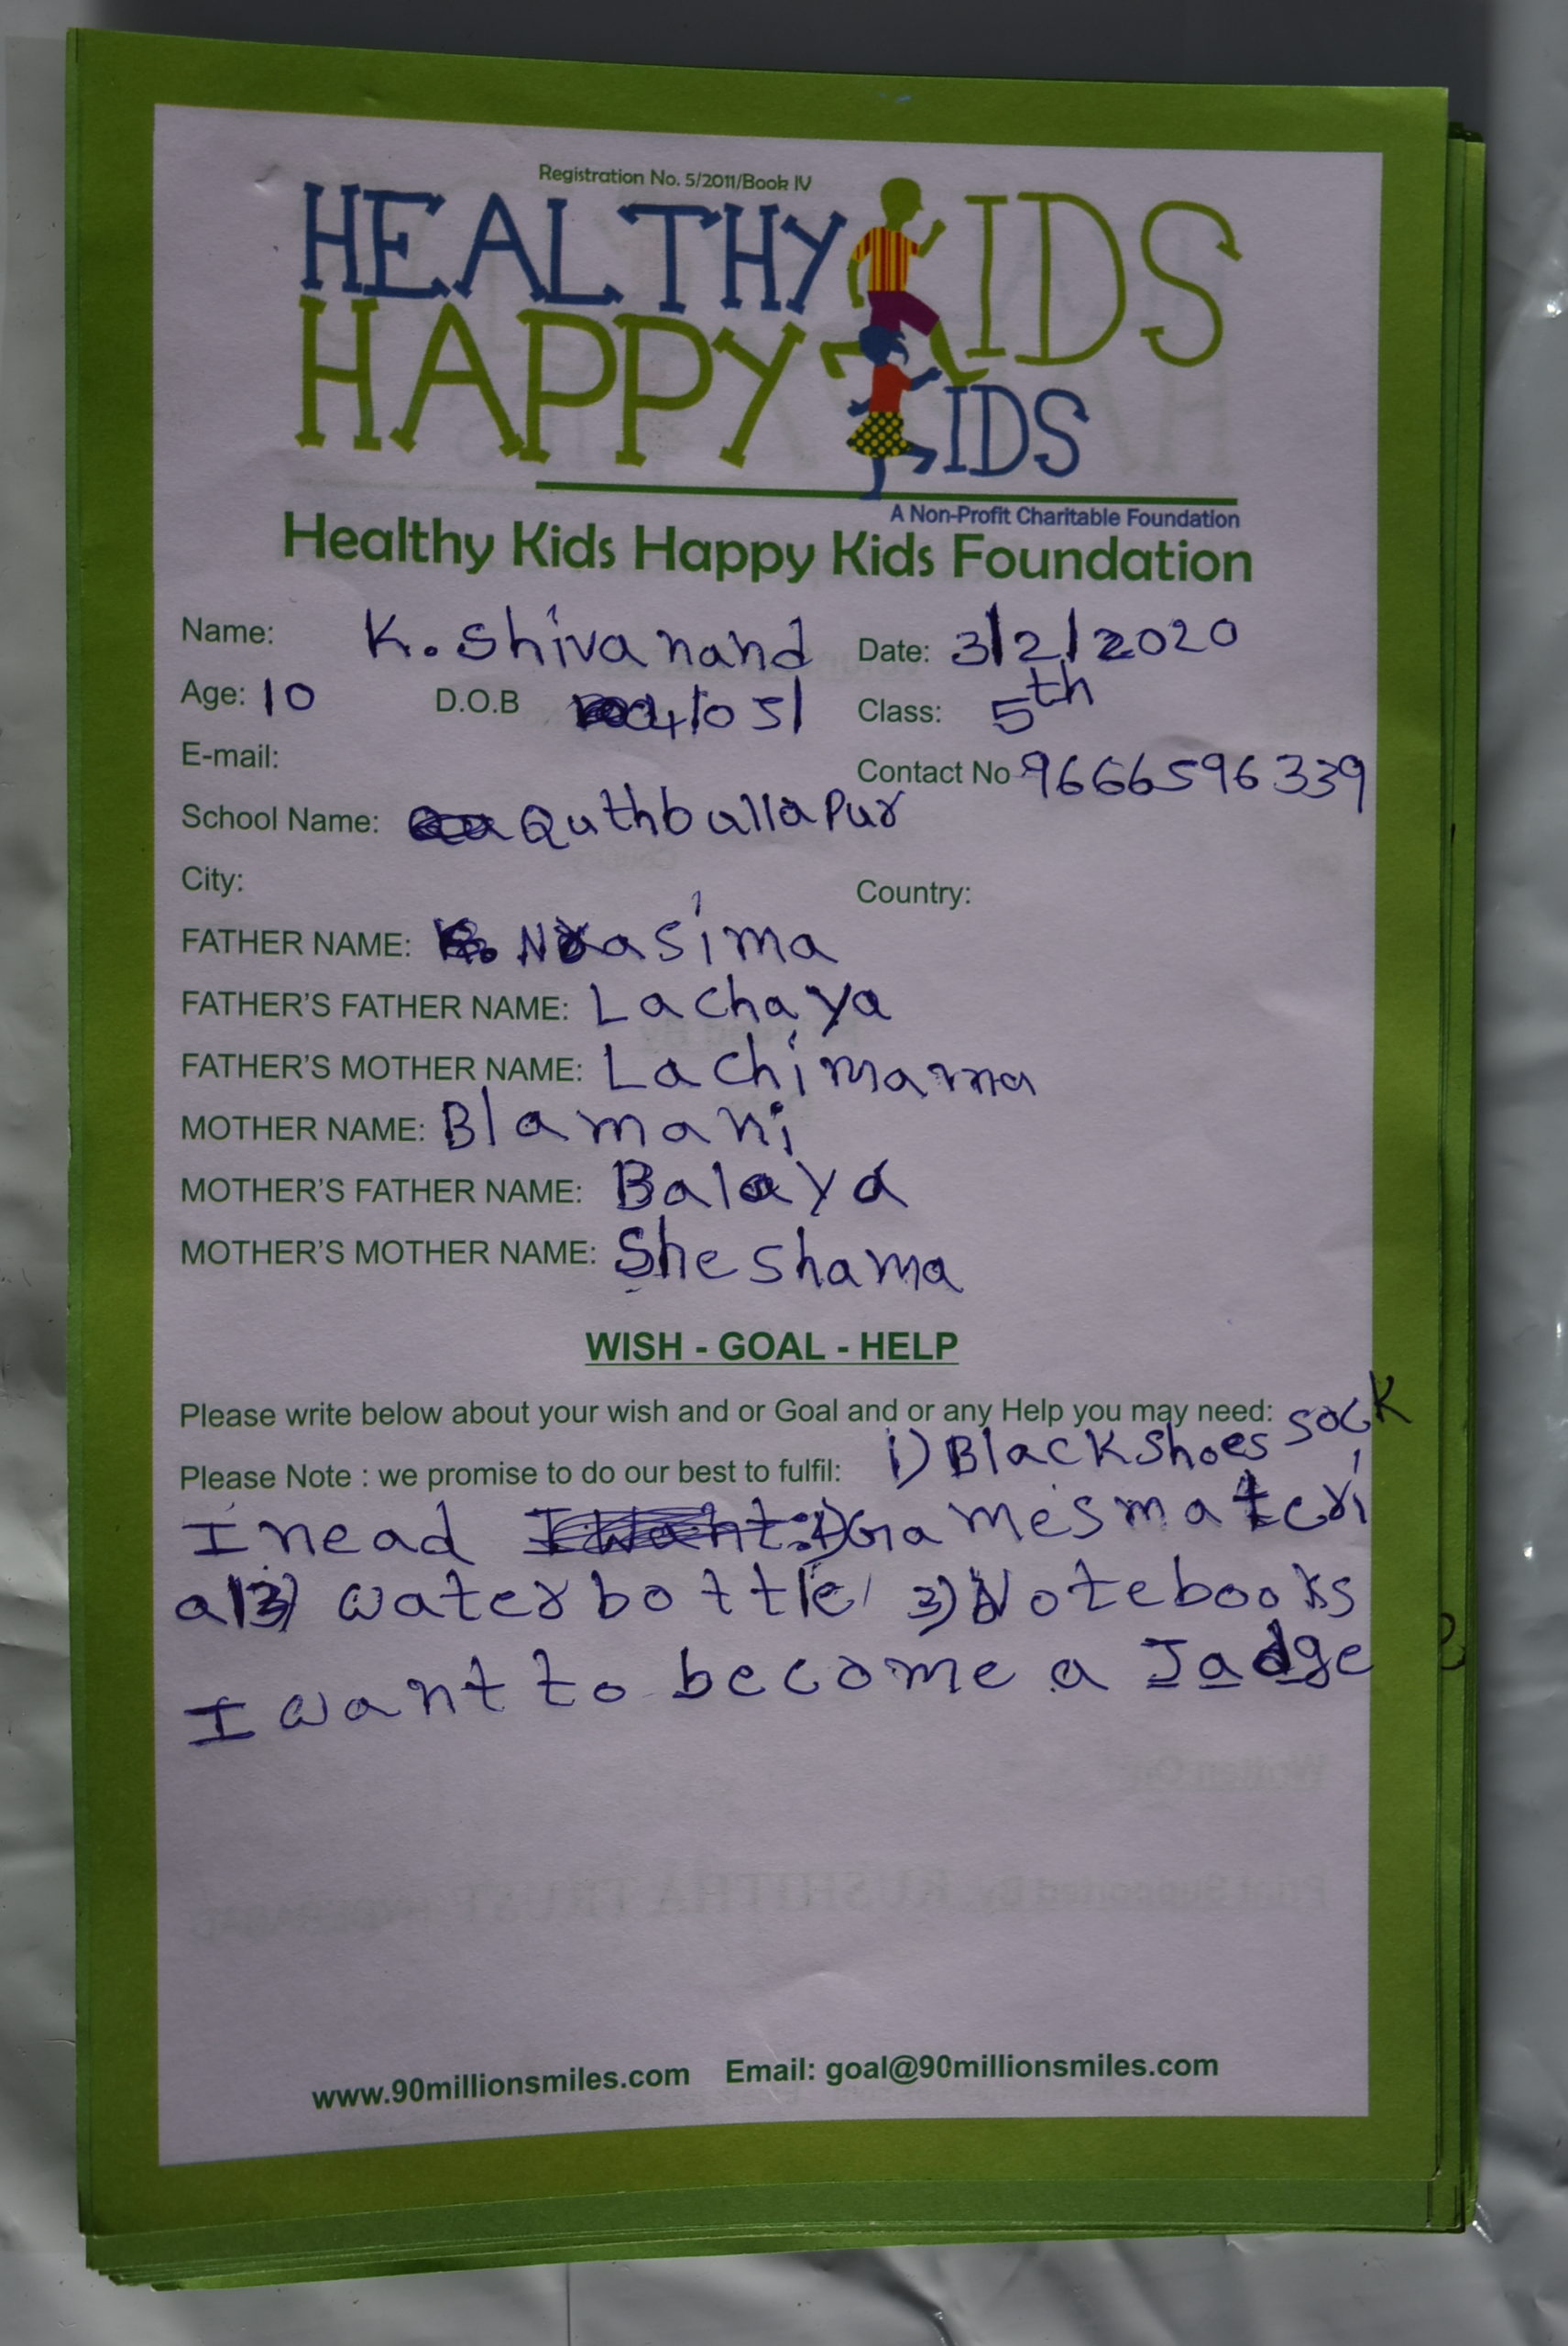 Registration No. 5/2011/Book IV
HEALTHY KIDS
HAPPY KIDS
A Non-Profit Charitable Foundation
Healthy Kids Happy Kids Foundation
Name: K. Shivanand Date: 3/2/2020
Age: 10 D.O.B 4/05/ Class: 5th
E-mail: Contact No 9666596339
School Name: Quthbullapur
City: Country:
FATHER NAME: Nrasima
FATHER'S FATHER NAME: Lachaya
FATHER'S MOTHER NAME: Lachimama
MOTHER NAME: Blamani
MOTHER'S FATHER NAME: Balaya
MOTHER'S MOTHER NAME: Sheshama
WISH - GOAL - HELP
Please write below about your wish and or Goal and or any Help you may need:
Please Note : we promise to do our best to fulfil: 1) Black shoes sock
I nead Games materi
al 3) water bottle 3) Notebooks
I want to become a Jadge
www.90millionsmiles.com Email: goal@90millionsmiles.com